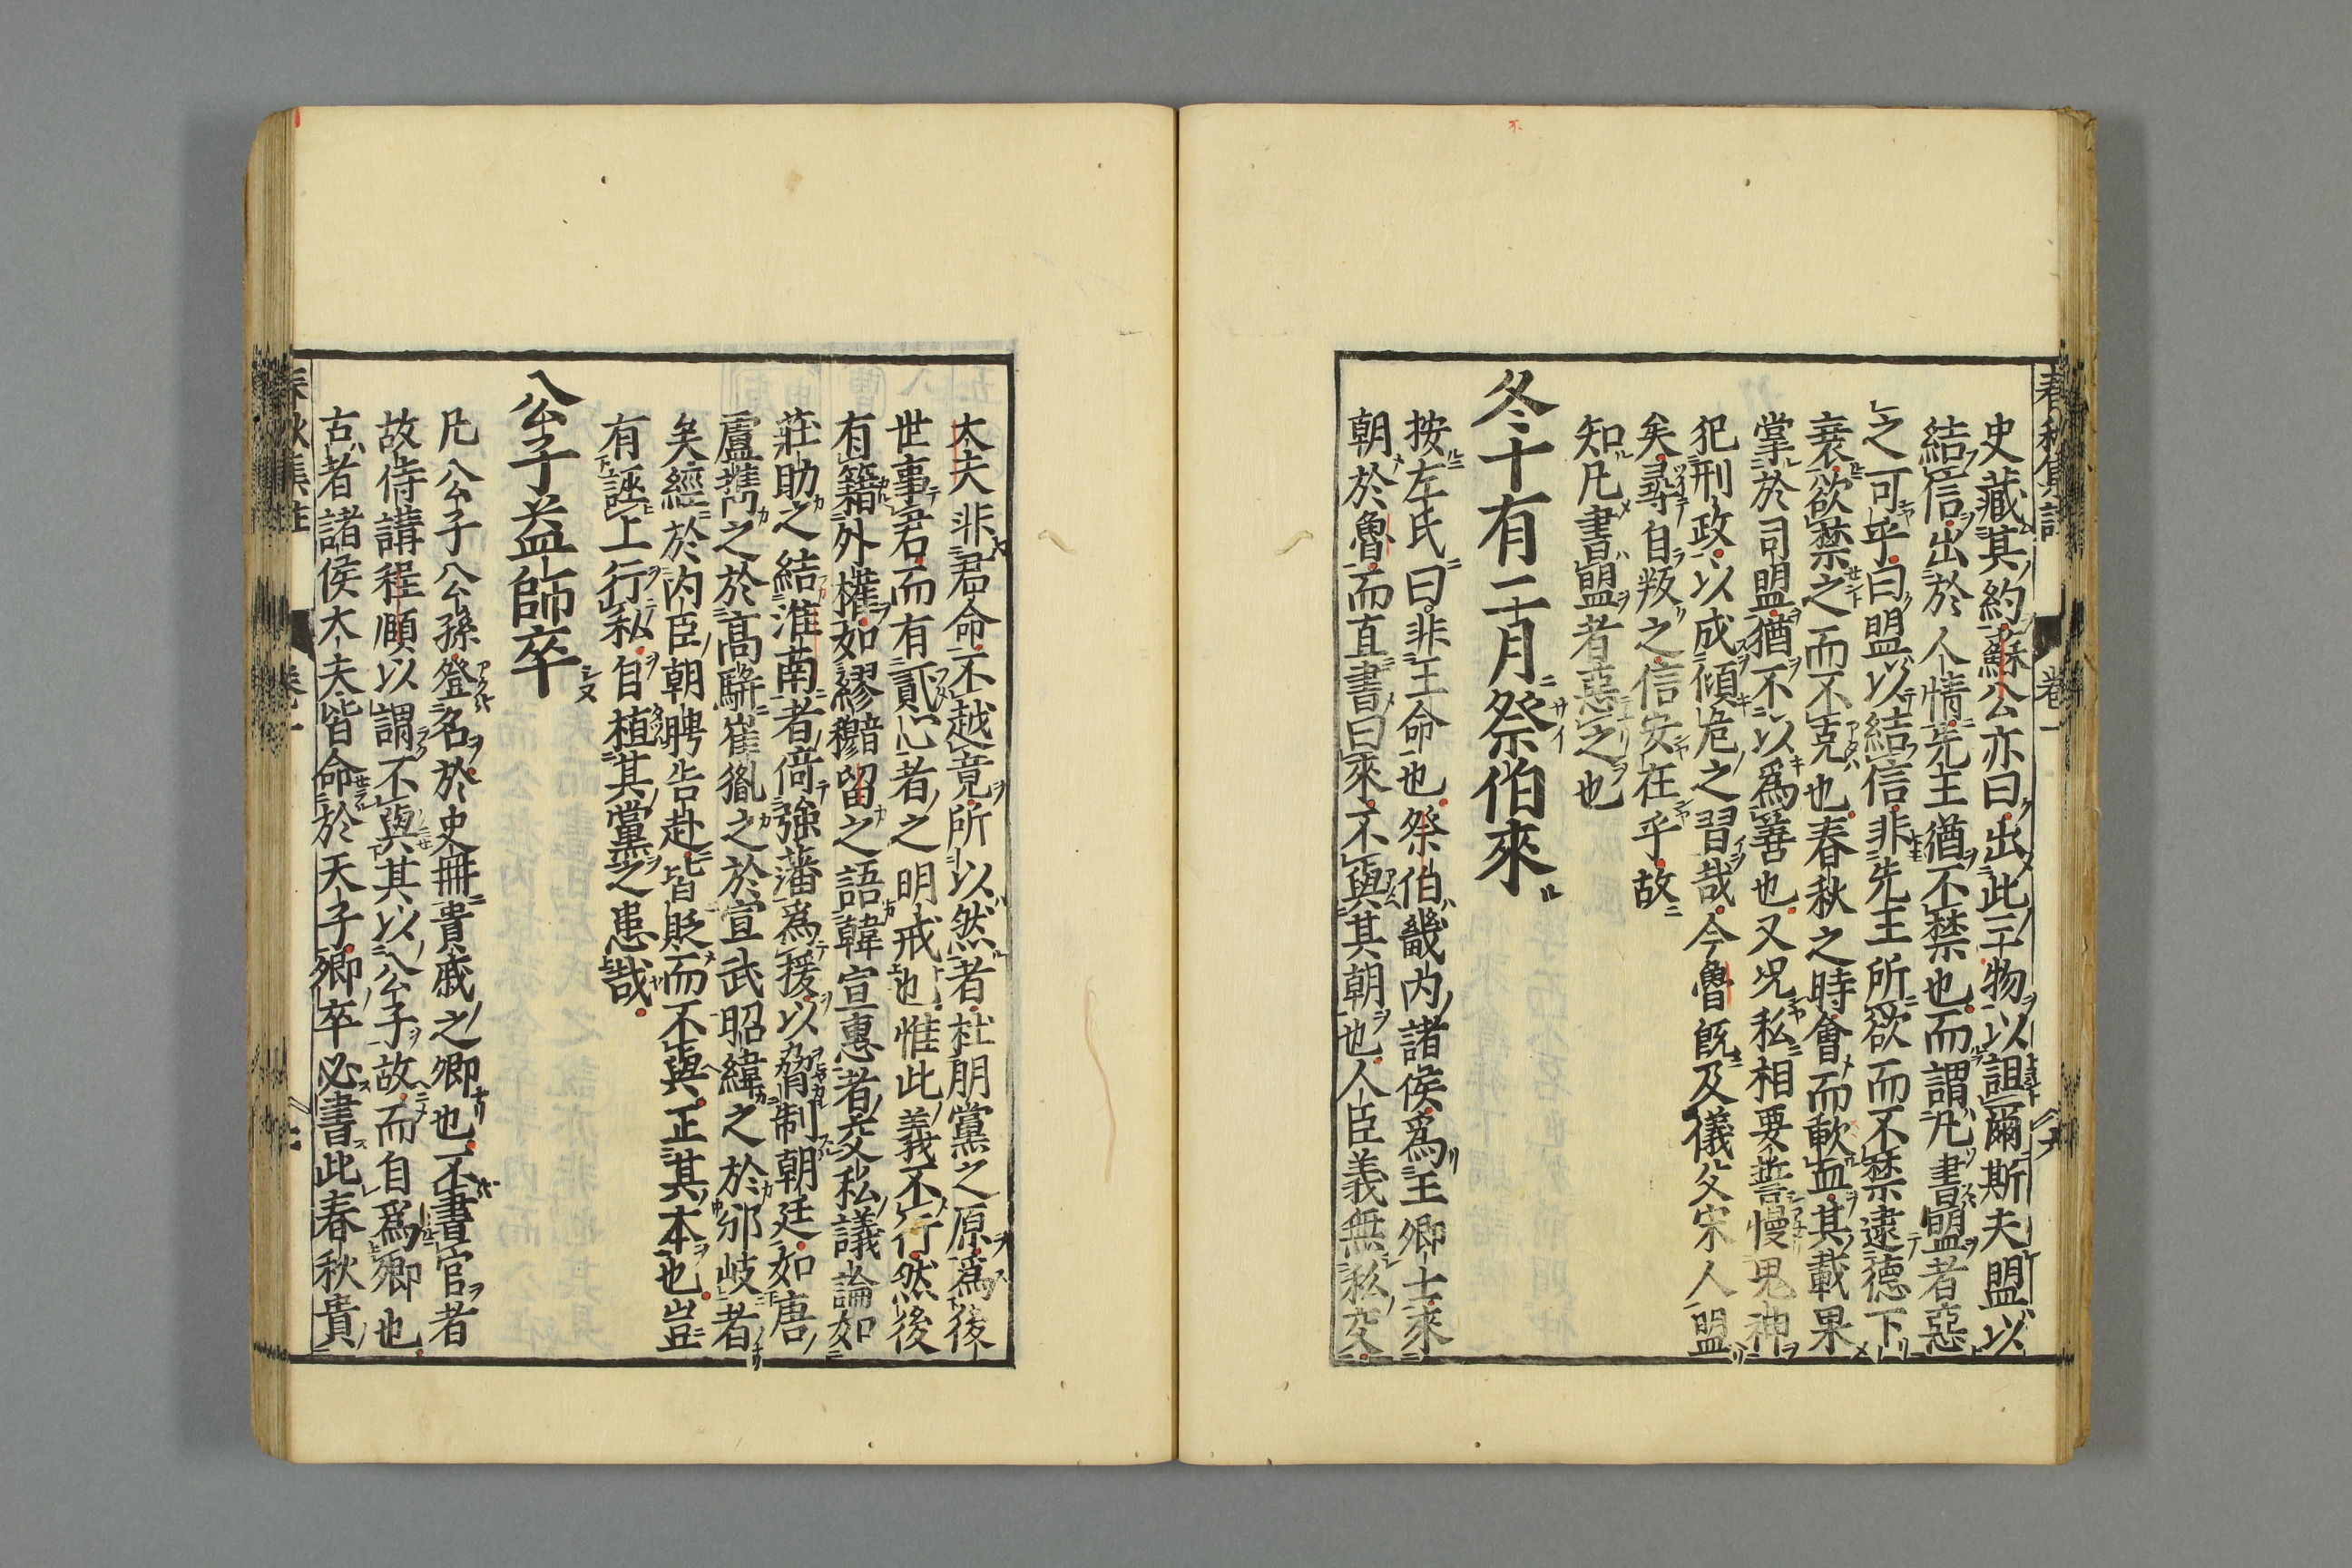 春秋集註 卷一
史藏其約蘇公亦曰出此三物以詛爾斯夫盟以
結信出於人情先王猶不禁也而謂凡書盟者惡
之可乎曰盟以結信非先王所欲而不禁逮德下
衰欲禁之而不克也春秋之時會而歃血其載果
掌於司盟猶不以爲善也又況私相要誓慢鬼神
犯刑政以成傾危之習哉今魯既及儀父宋人盟
矣尋自叛之信安在乎故
知凡書盟者惡之也
冬十有二月祭伯來
按左氏曰非王命也祭伯畿内諸侯爲王卿士來
朝於魯而直書曰來不與其朝也人臣義無私交
大夫非君命不越竟所以然者杜朋黨之原爲後
世事君而有貳心者之明戒也惟此義不行然後
有籍外權如繆醔留之語韓宣惠者交私議論如
莊助之結淮南者倚強藩爲援以脅制朝廷如唐
盧攜之於高駢崔胤之於宣武昭緯之於邠岐者
矣經於内臣朝聘告赴皆貶而不與正其本也豈
有誣上行私自植其黨之患哉
公子益師卒
凡公子公孫登名於史冊貴戚之卿也不書官者
故侍講程頤以謂不與其以公子故而自爲卿也
古者諸侯大夫皆命於天子卿卒必書此春秋貴
春秋集註 卷一